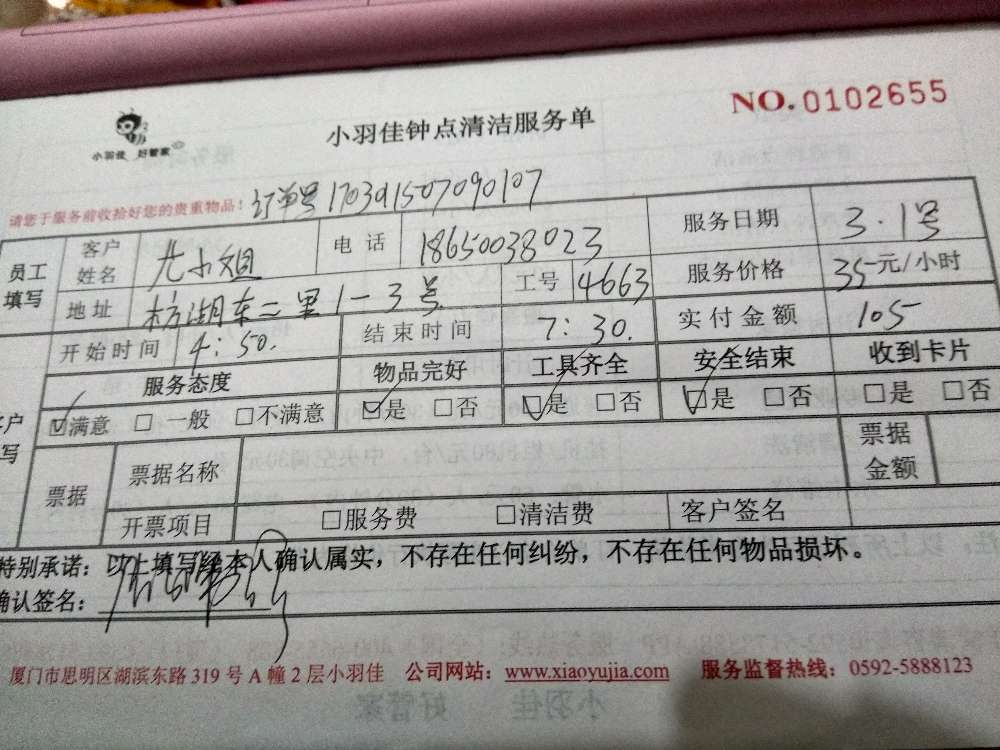 NO.0102655
小羽佳 好管家
小羽佳钟点清洁服务单
请您于服务前收拾好您的贵重物品！ 订单号170301507090107
员工填写 客户姓名 尤小姐 电话 18650038023 服务日期 3.1号
地址 枋湖东二里1-3号 工号 4663 服务价格 35元/小时
开始时间 4:50. 结束时间 7:30. 实付金额 105
服务态度 物品完好 工具齐全 安全结束 收到卡片
客户填写 ☑满意 □一般 □不满意 ☑是 □否 ☑是 □否 ☑是 □否 □是 □否
票据 票据名称 票据金额
开票项目 □服务费 □清洁费 客户签名
特别承诺：以上填写经本人确认属实，不存在任何纠纷，不存在任何物品损坏。
确认签名：
厦门市思明区湖滨东路 319 号 A 幢 2 层小羽佳 公司网站：www.xiaoyujia.com 服务监督热线：0592-5888123